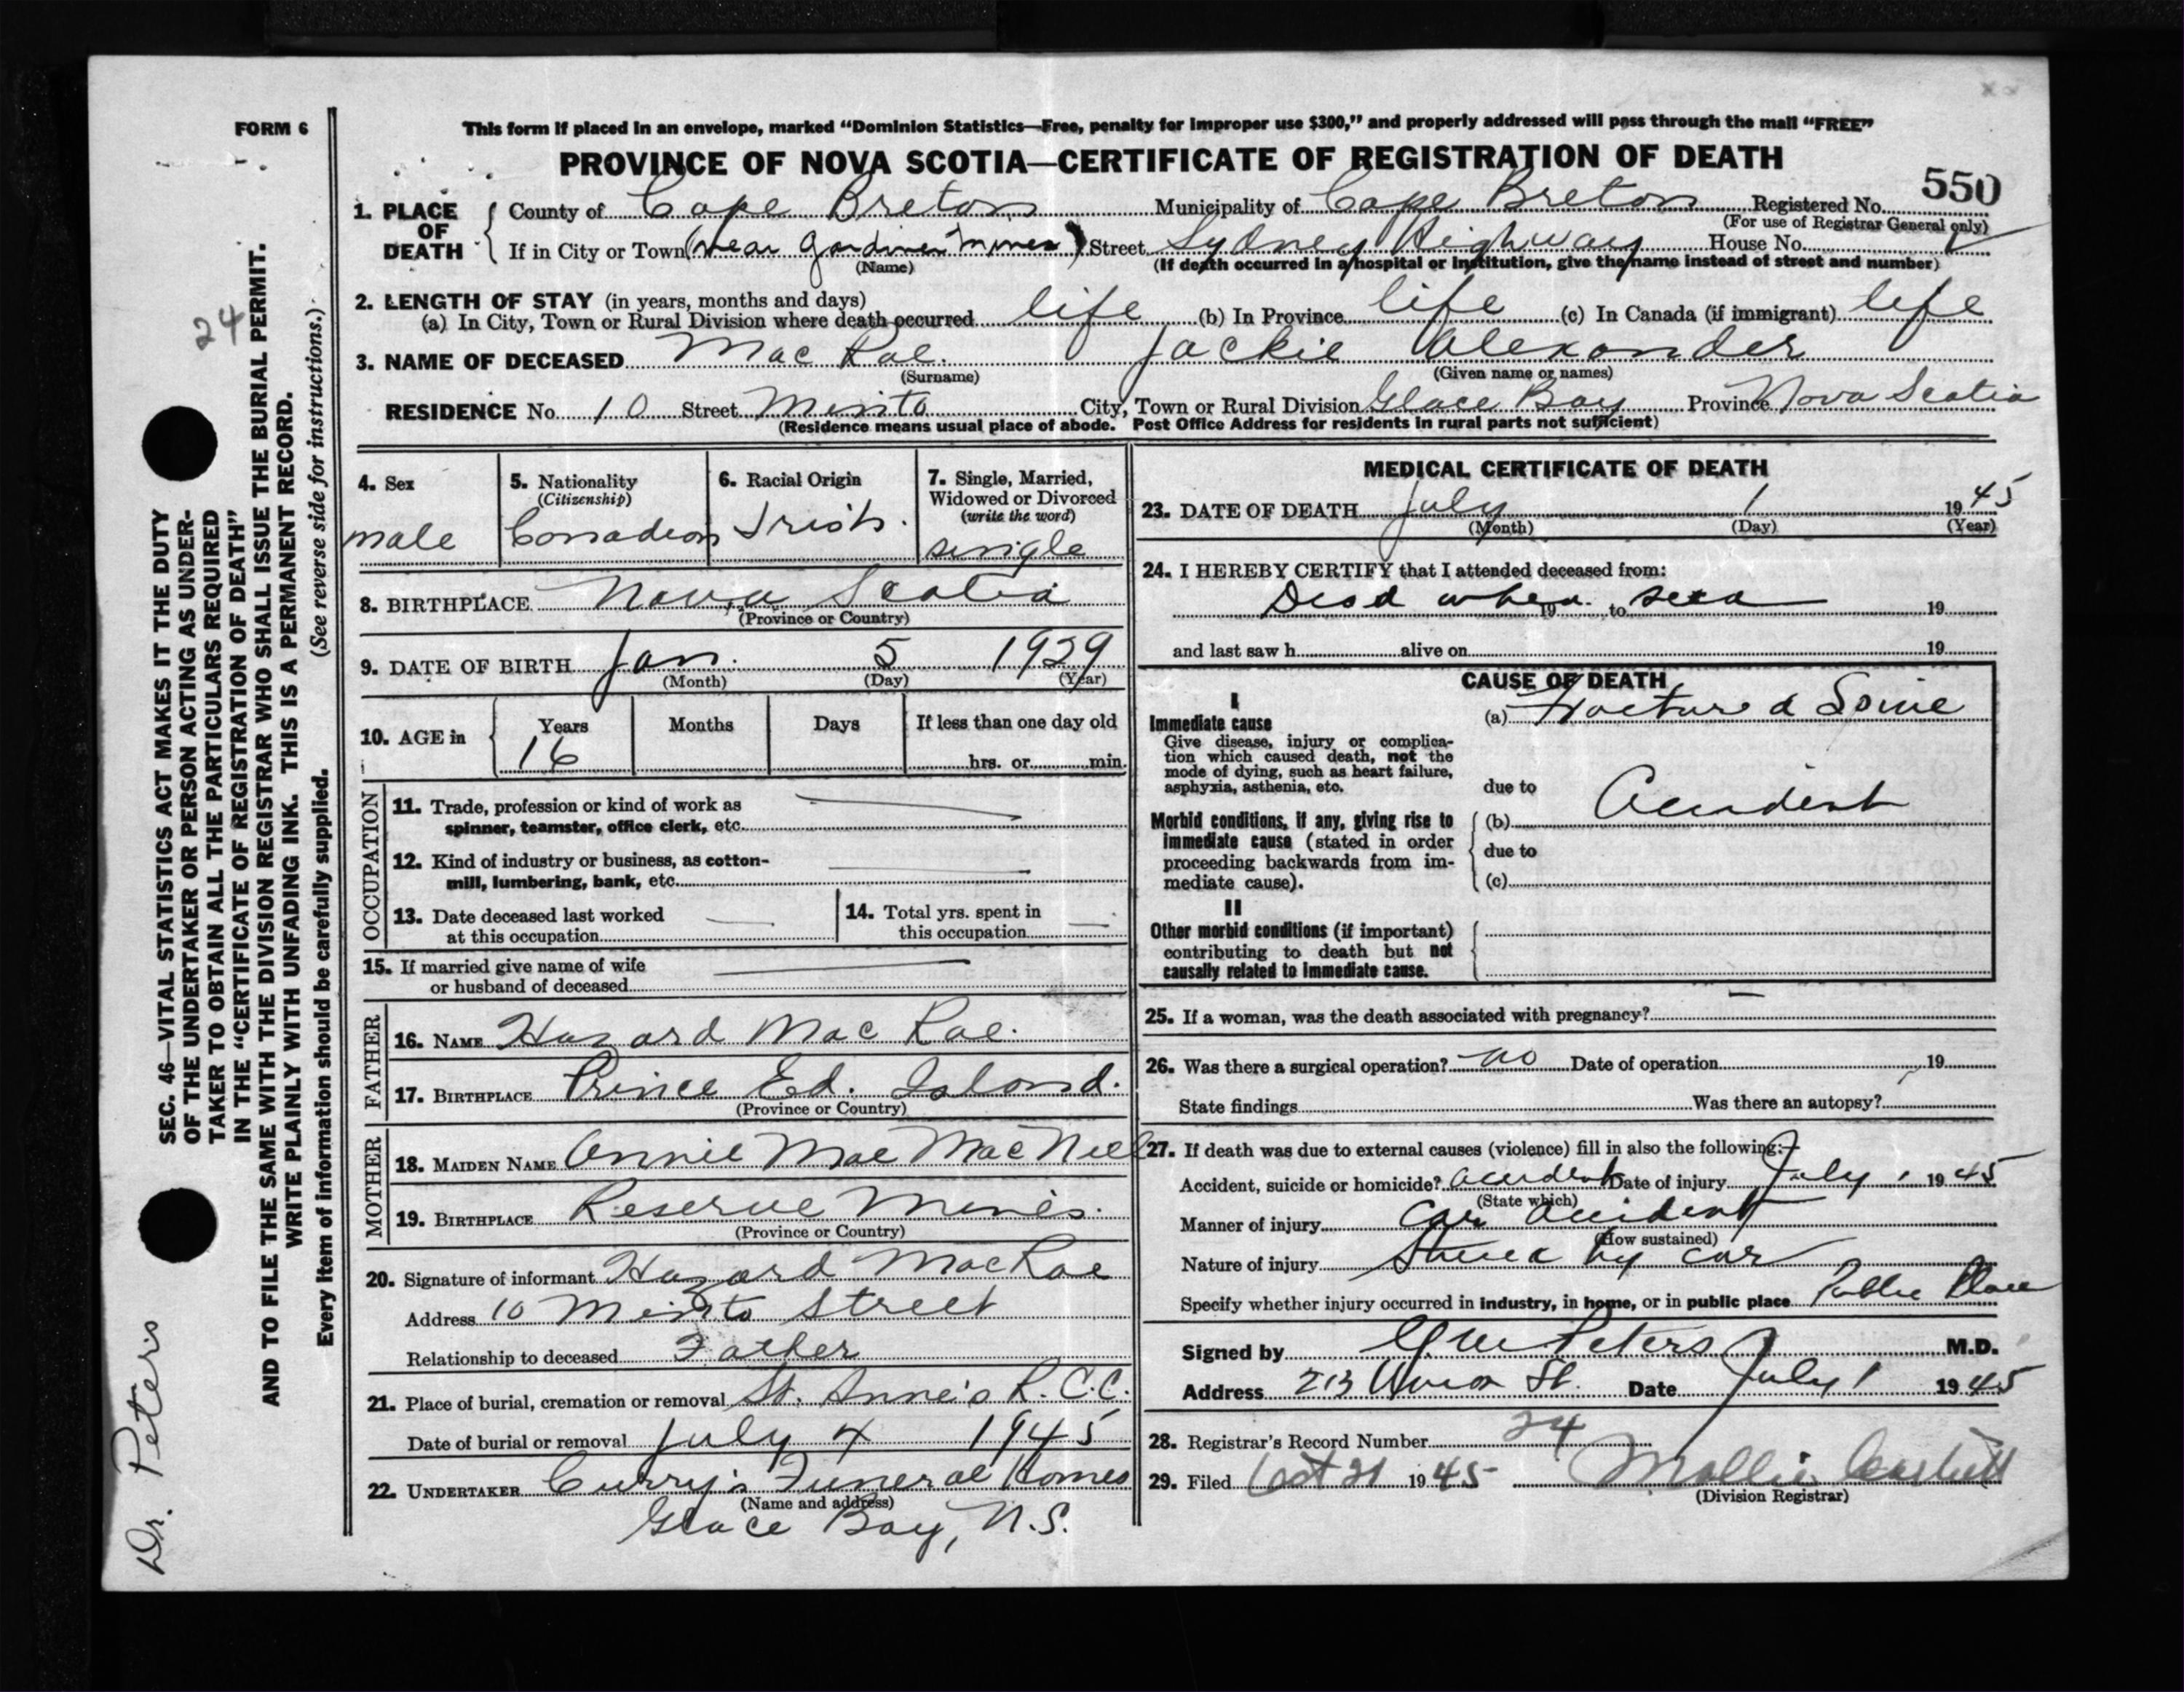 FORM 6
This form if placed in an envelope, marked “Dominion Statistics—Free, penalty for improper use $300,” and properly addressed will pass through the mail “FREE”
PROVINCE OF NOVA SCOTIA—CERTIFICATE OF REGISTRATION OF DEATH
550
1. PLACE OF DEATH
County of Cape Breton Municipality of Cape Breton Registered No.
(For use of Registrar General only)
If in City or Town (near Gardiner Mines) Street Sydney Highway House No.
(Name) (If death occurred in a hospital or institution, give the name instead of street and number)
2. LENGTH OF STAY (in years, months and days)
(a) In City, Town or Rural Division where death occurred life (b) In Province life (c) In Canada (if immigrant) life
3. NAME OF DECEASED Mac Rae. Jackie Alexander
(Surname) (Given name or names)
RESIDENCE No. 10 Street Minto City, Town or Rural Division Glace Bay Province Nova Scotia
(Residence means usual place of abode. Post Office Address for residents in rural parts not sufficient)
4. Sex
male
5. Nationality
(Citizenship)
Canadian
6. Racial Origin
Irish.
7. Single, Married,
Widowed or Divorced
(write the word)
single
8. BIRTHPLACE Nova Scotia
(Province or Country)
9. DATE OF BIRTH Jan. 5 1929
(Month) (Day) (Year)
10. AGE in
Years Months Days If less than one day old
16 hrs. or min.
OCCUPATION
11. Trade, profession or kind of work as
spinner, teamster, office clerk, etc.
12. Kind of industry or business, as cotton-
mill, lumbering, bank, etc.
13. Date deceased last worked
at this occupation
14. Total yrs. spent in
this occupation
15. If married give name of wife
or husband of deceased
FATHER
16. NAME Hazard Mac Rae.
17. BIRTHPLACE Prince Ed. Island.
(Province or Country)
MOTHER
18. MAIDEN NAME Annie Mae MacNeil
19. BIRTHPLACE Reserve Mines.
(Province or Country)
20. Signature of informant Hazard MacRae
Address 10 Minto Street
Relationship to deceased Father
21. Place of burial, cremation or removal St. Anne's R.C.C.
Date of burial or removal July 4 1945
22. UNDERTAKER Curry's Funeral Homes
(Name and address)
Glace Bay, N.S.
MEDICAL CERTIFICATE OF DEATH
23. DATE OF DEATH July 1 1945
(Month) (Day) (Year)
24. I HEREBY CERTIFY that I attended deceased from:
Dead when seen 19 to 19
and last saw h alive on 19
CAUSE OF DEATH
I
Immediate cause (a) Fractured Spine
Give disease, injury or complica-
tion which caused death, not the
mode of dying, such as heart failure,
asphyxia, asthenia, etc.
due to
Morbid conditions, if any, giving rise to
immediate cause (stated in order
proceeding backwards from im-
mediate cause).
(b) Accident
due to
(c)
II
Other morbid conditions (if important)
contributing to death but not
causally related to immediate cause.
25. If a woman, was the death associated with pregnancy? —
26. Was there a surgical operation? no Date of operation 19
State findings Was there an autopsy?
27. If death was due to external causes (violence) fill in also the following:
Accident, suicide or homicide? accident Date of injury July 1 1945
(State which)
Manner of injury Car accident
(How sustained)
Nature of injury Struck by car
Specify whether injury occurred in industry, in home, or in public place Public Place
Signed by Peters M.D.
Address 213 Union St. Date July 1 1945
28. Registrar's Record Number 24
29. Filed Oct 21 1945 Mollie
(Division Registrar)
SEC. 46—VITAL STATISTICS ACT MAKES IT THE DUTY
OF THE UNDERTAKER OR PERSON ACTING AS UNDER-
TAKER TO OBTAIN ALL THE PARTICULARS REQUIRED
IN THE “CERTIFICATE OF REGISTRATION OF DEATH”
AND TO FILE THE SAME WITH THE DIVISION REGISTRAR WHO SHALL ISSUE THE BURIAL PERMIT.
WRITE PLAINLY WITH UNFADING INK. THIS IS A PERMANENT RECORD.
Every item of information should be carefully supplied. (See reverse side for instructions.)
24
Dr. Peters